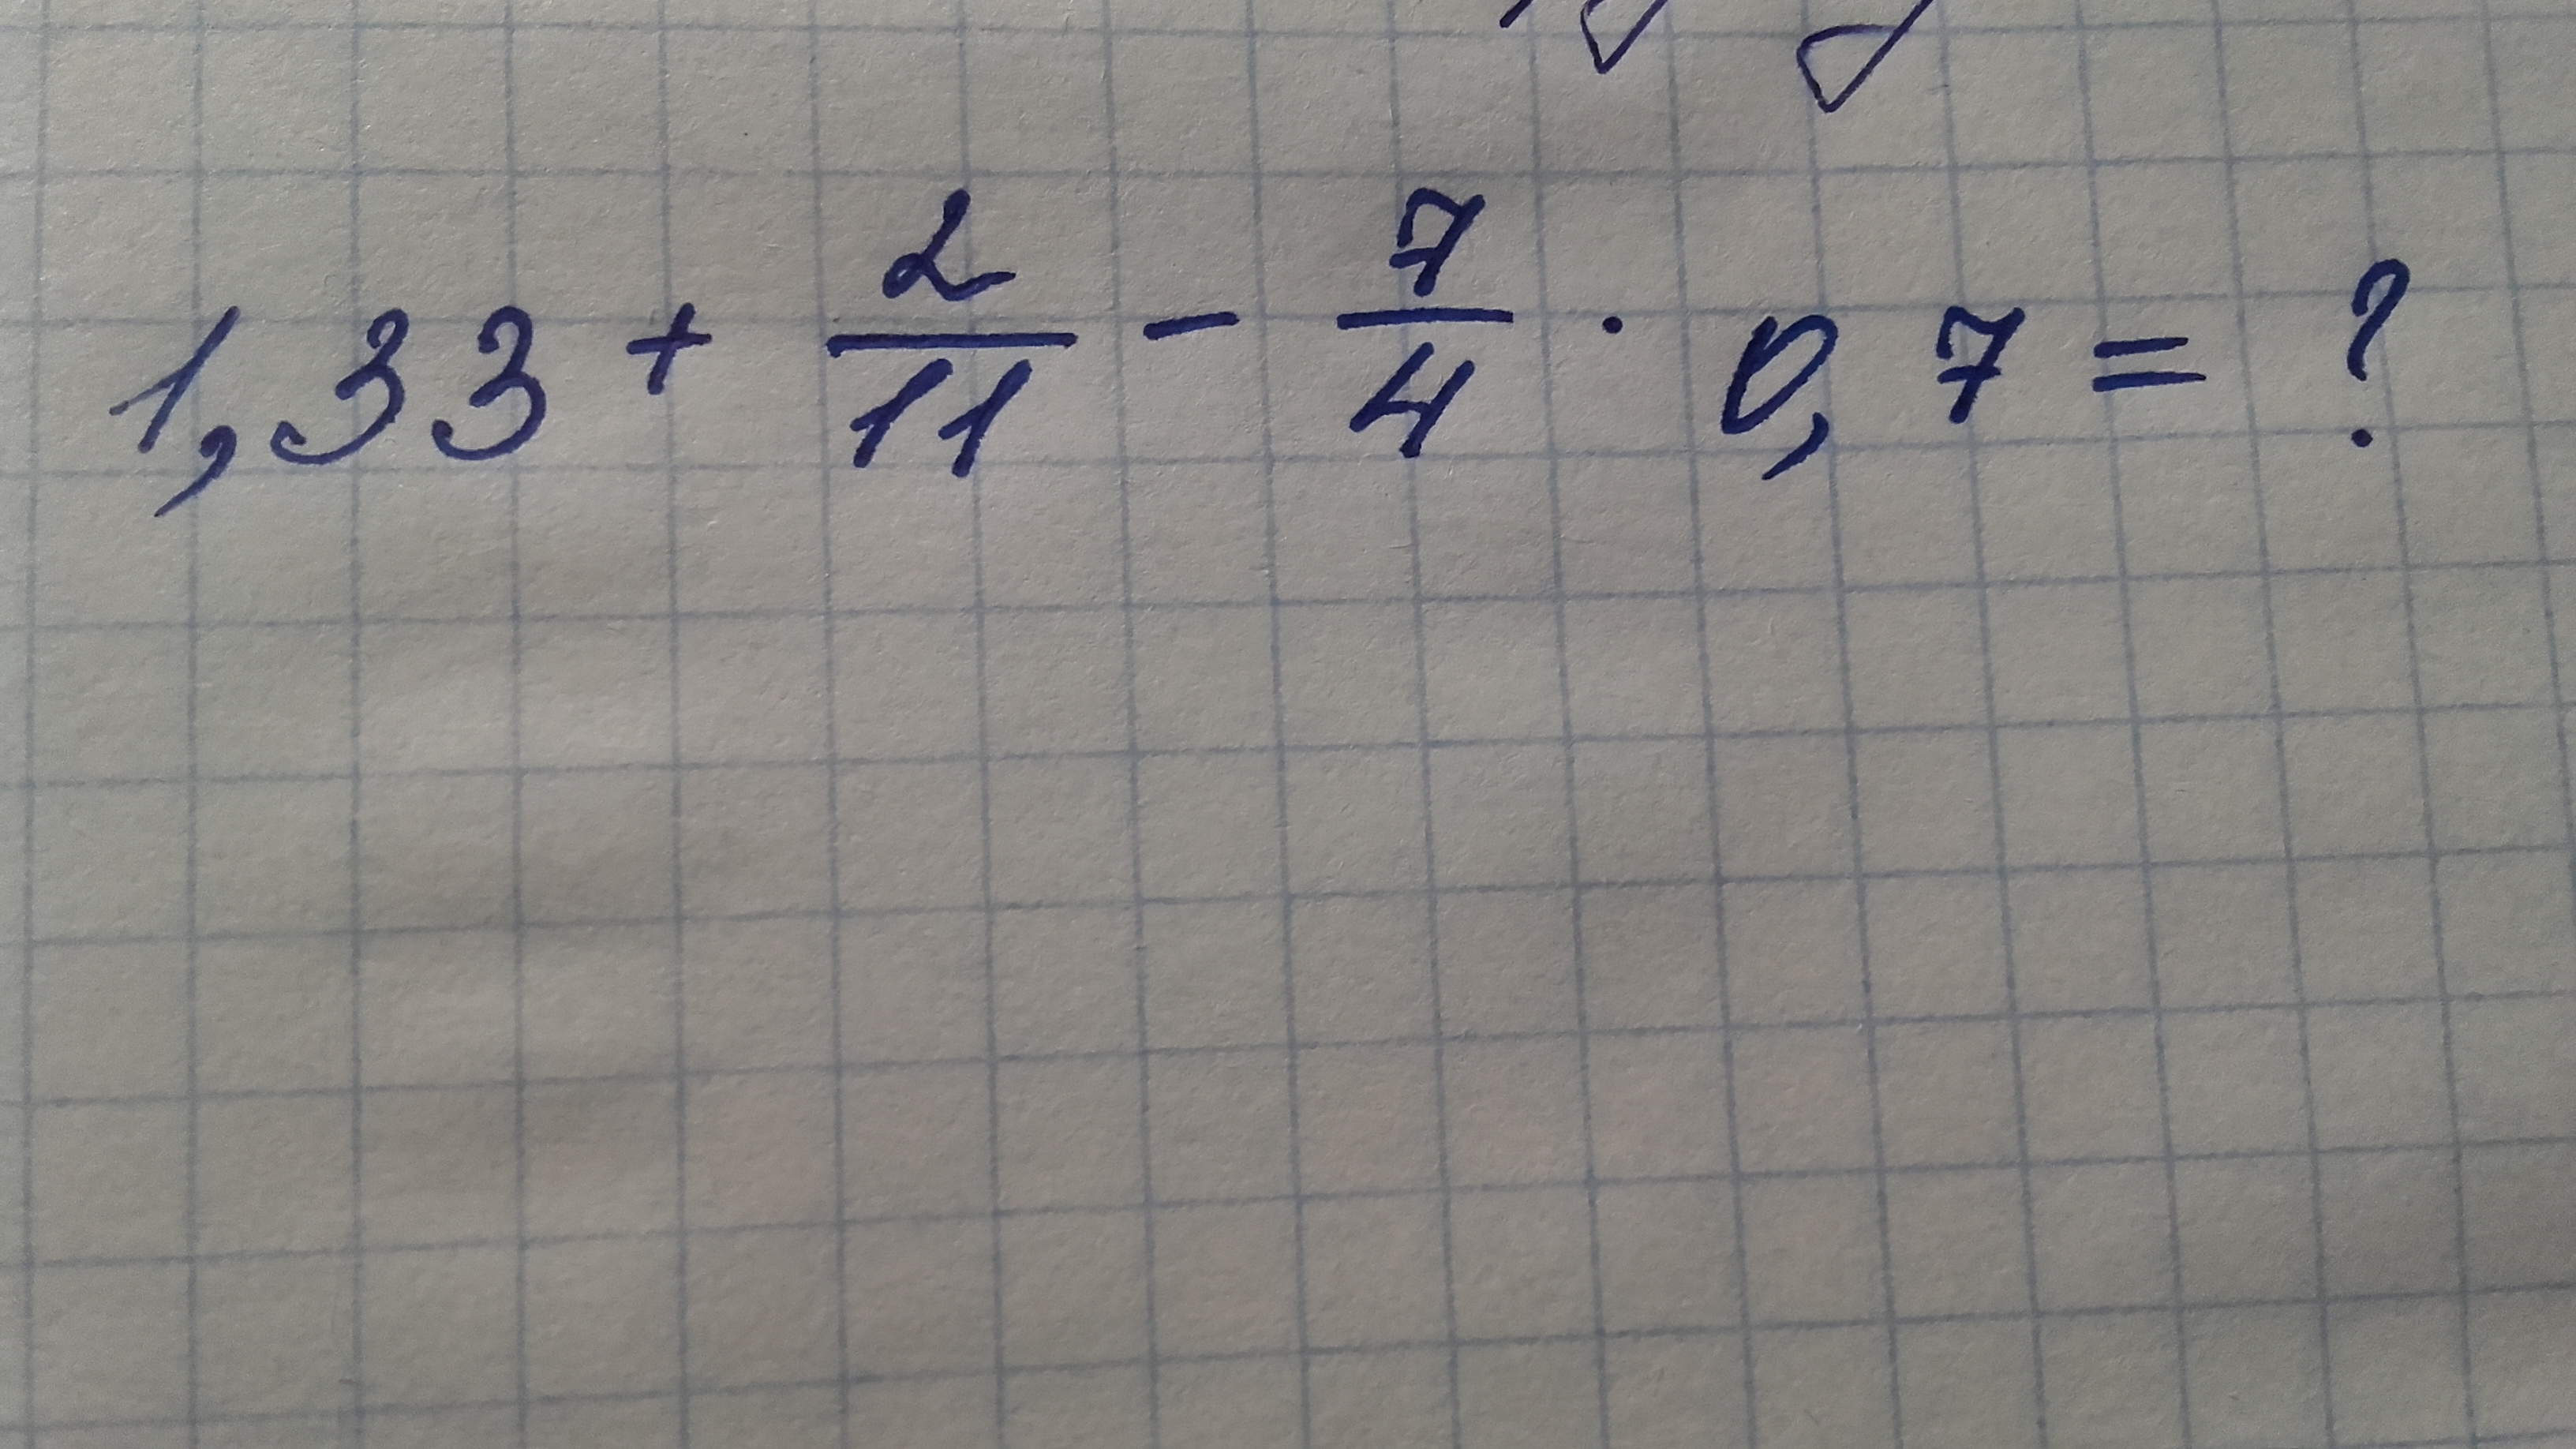 1,33 + 2/11 - 7/4 · 0,7 = ?